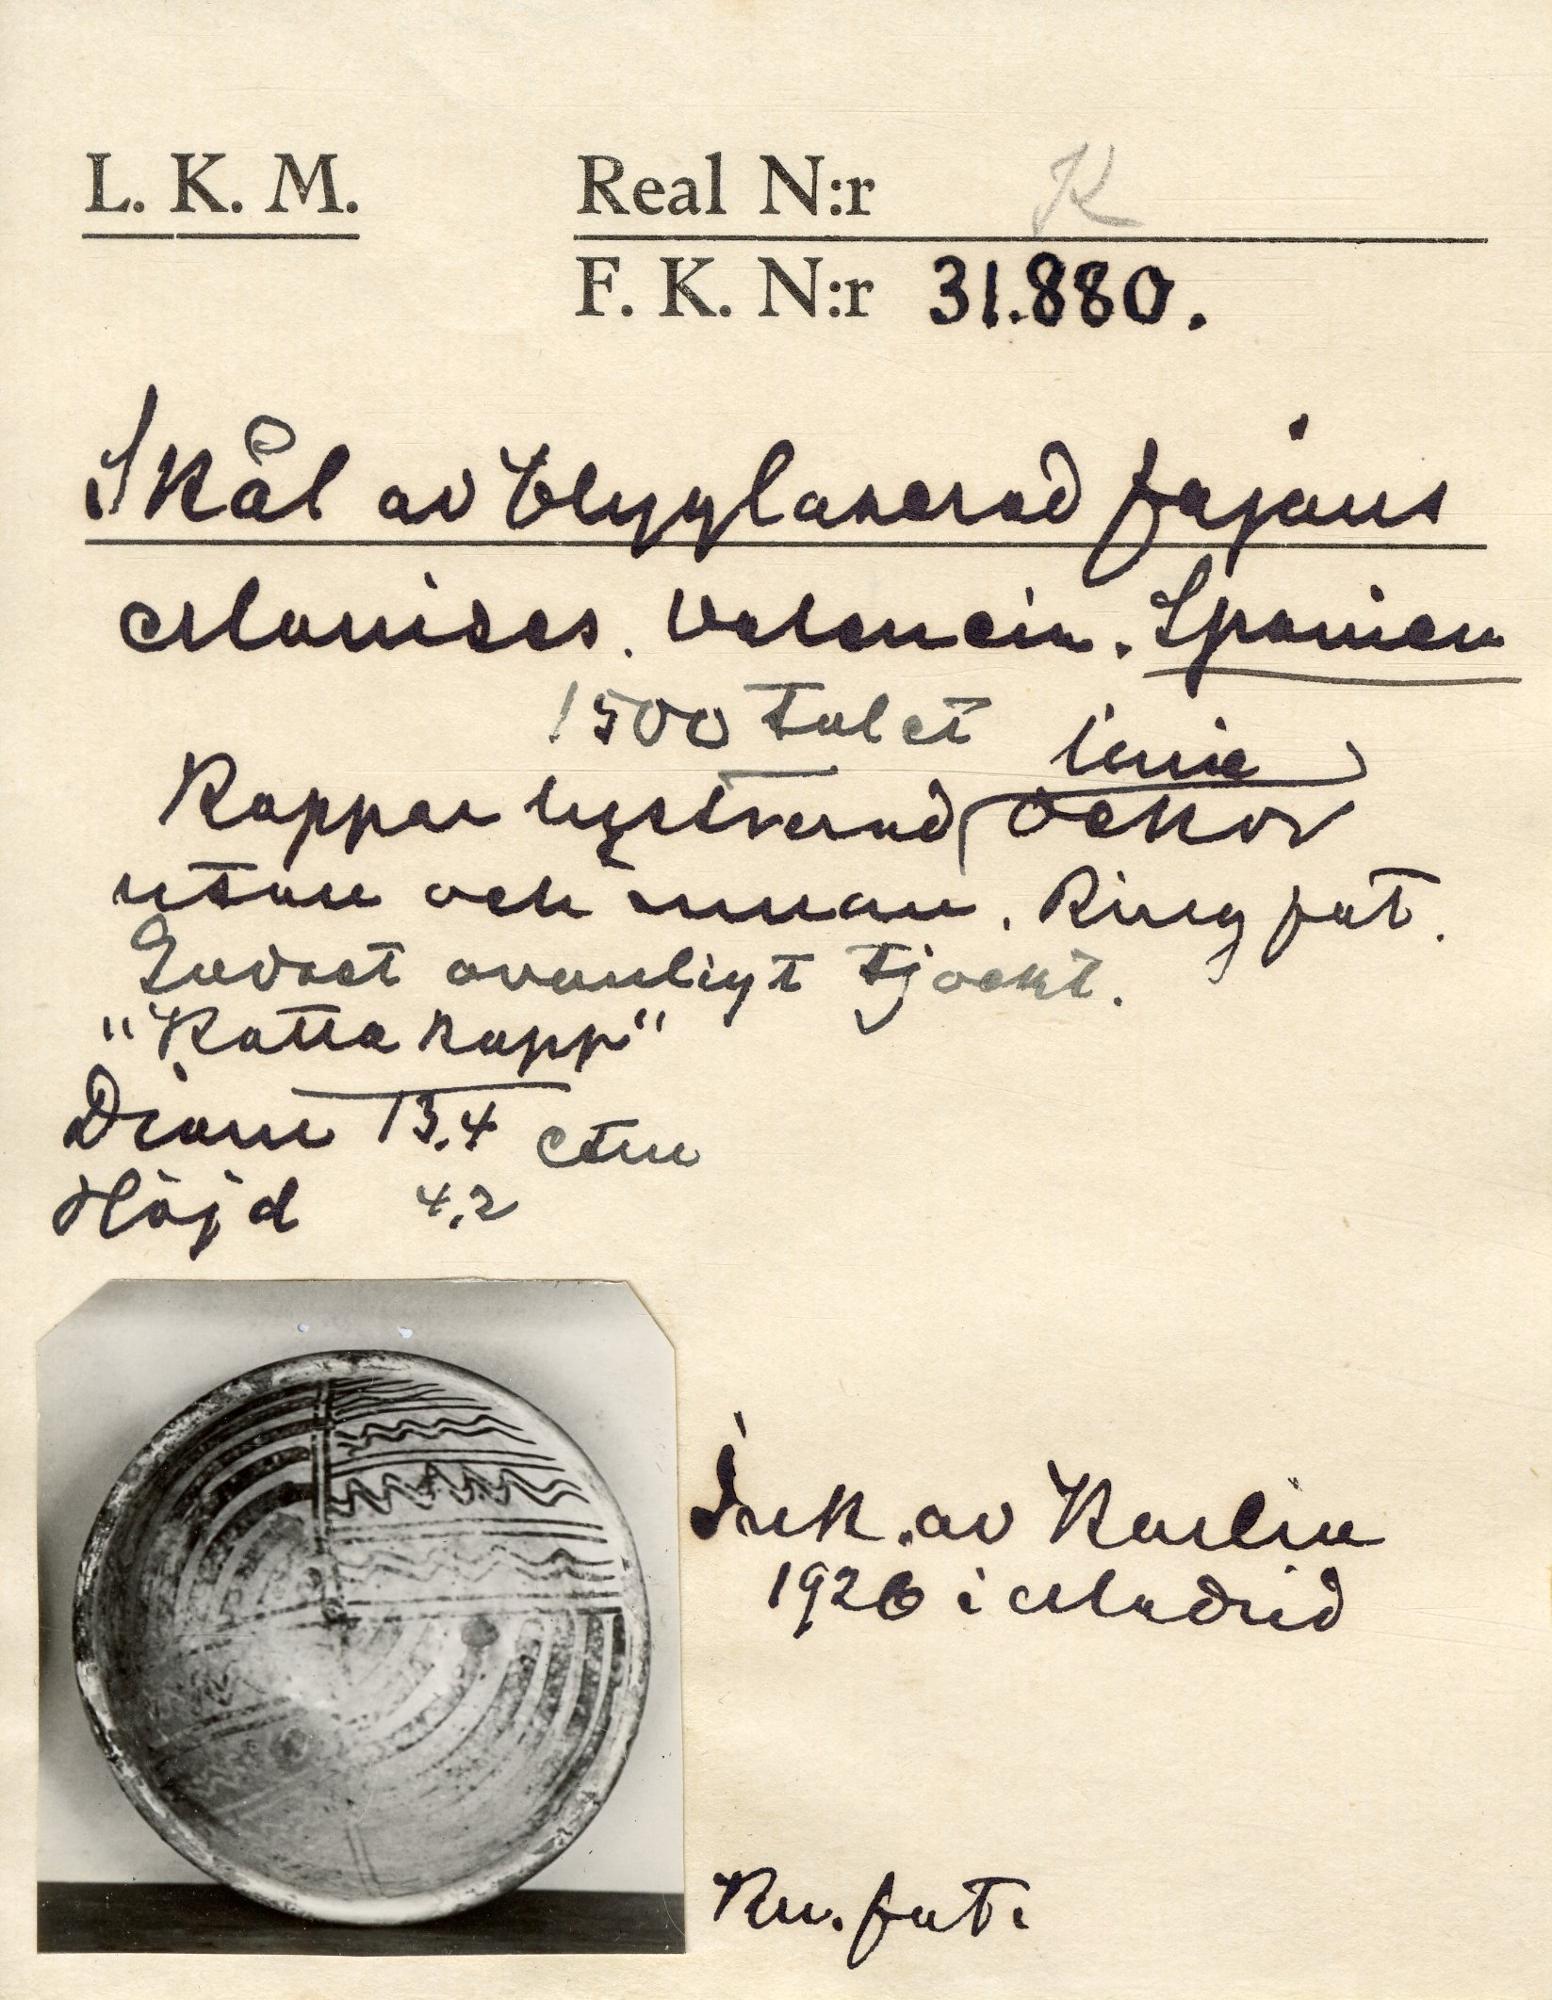 L. K. M.
Real N:r K
F. K. N:r 31.880.
Skål av blyglaserad fajans
Manises. Valencia. Spanien
1500 talet
linie
Koppar lystrerad dekor
utan och innan. Ring fot.
Godset ovanligt tjockt.
"Katta kopp"
Diam 13.4 ctm
Höjd 4,2
Ink. av Karlin
1926 i Madrid
Kn. fot.